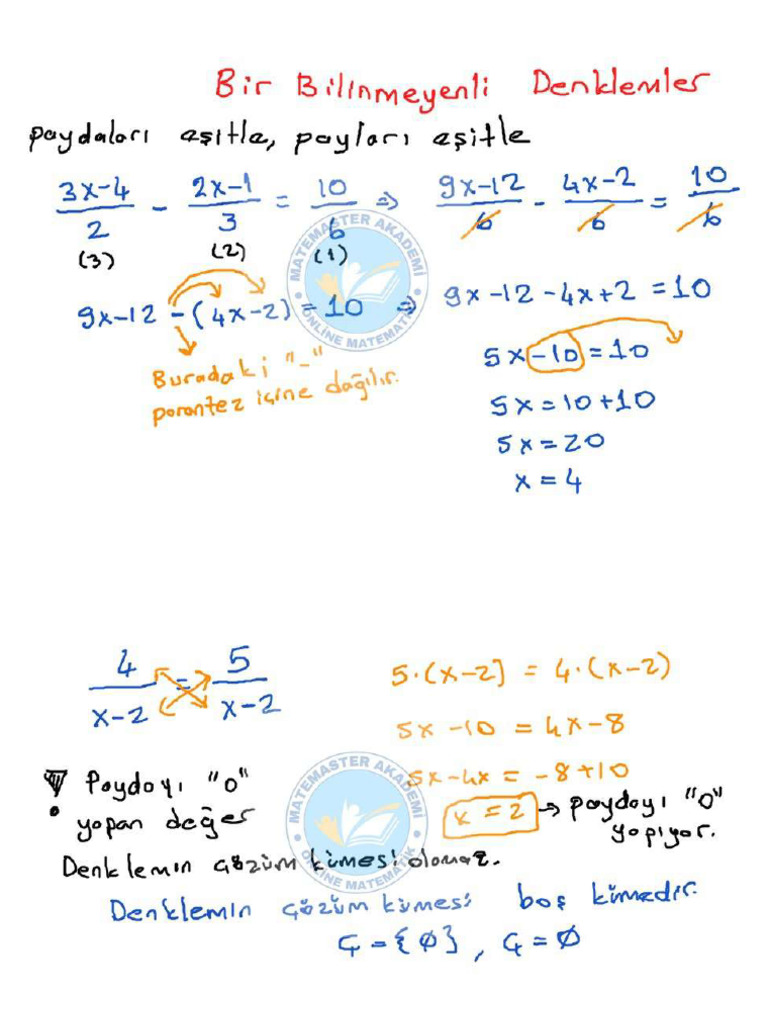 Bir Bilinmeyenli Denklemler
paydaları eşitle, payları eşitle
3x-4/2 - 2x-1/3 = 10/6 ⇒ 9x-12/6 - 4x-2/6 = 10/6
(3) (2) (1)
9x-12 -(4x-2) = 10 ⇒ 9x-12-4x+2 = 10
Buradaki "-"
parantez içine dağılır.
5x-10 = 10
5x = 10+10
5x = 20
x = 4
4/x-2 = 5/x-2
5·(x-2) = 4·(x-2)
5x-10 = 4x-8
5x-4x = -8+10
x = 2 → paydayı "0"
yapıyor.
Paydayı "0"
yapan değer
Denklemin çözüm kümesi olamaz.
Denklemin çözüm kümesi boş kümedir.
Ç = {∅}, Ç = ∅
MATEMASTER AKADEMİ
ONLİNE MATEMATİK
MATEMASTER AKADEMİ
ONLİNE MATEMATİK